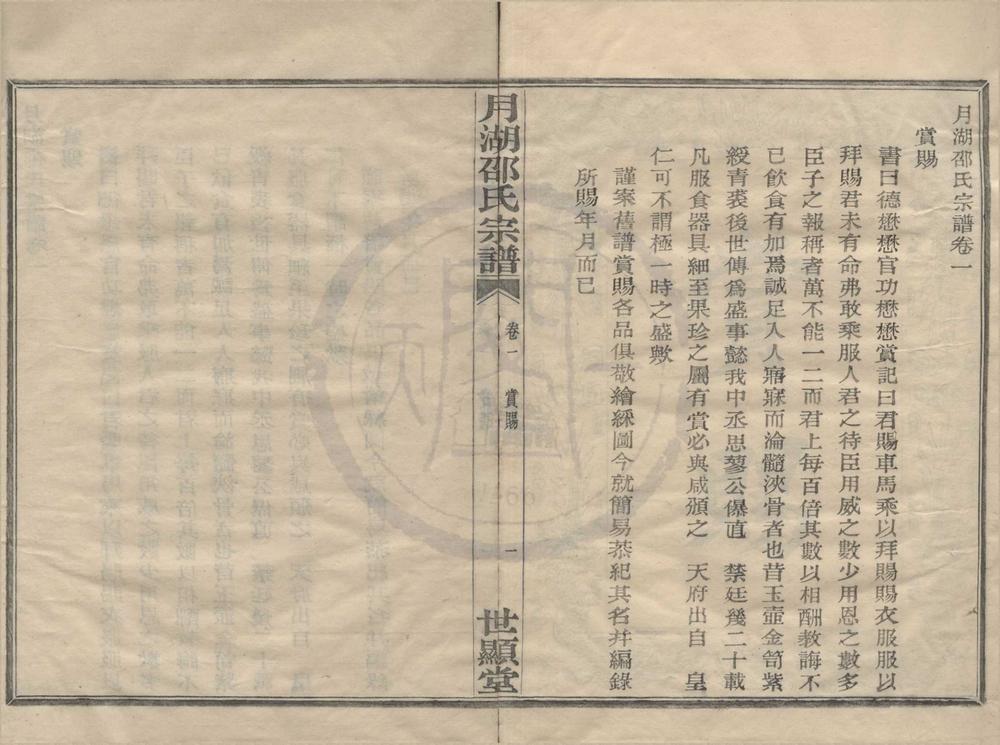 月湖邵氏宗譜卷一
賞賜
書曰德懋懋官功懋懋賞記曰君賜車馬乘以拜賜賜衣服服以
拜賜君未有命弗敢乘服人君之待臣用威之數少用恩之數多
臣子之報稱者萬不能一二而君上每百倍其數以相酬教誨不
已飲食有加焉誠足入人寤寐而淪髓浹骨者也昔玉壺金笥紫
綬青裘後世傳爲盛事懿我中丞思蓼公儤直 禁廷幾二十載
凡服食器具細至果珍之屬有賞必與咸頒之 天府出自 皇
仁可不謂極一時之盛歟
謹案舊譜賞賜各品俱敬繪綵圖今就簡易恭紀其名并編錄
所賜年月而已
月湖邵氏宗譜
卷一
賞賜
一
世顯堂